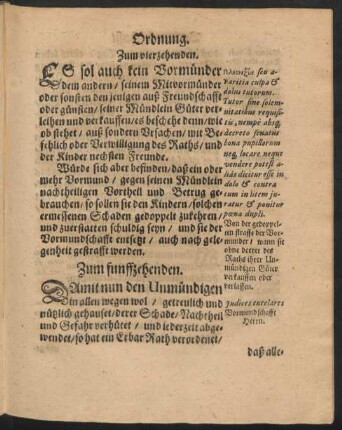 Ordnung.
Zum vierzehenden.
ES sol auch kein Vormünder
dem andern / seinem Mitvormünder
oder sonsten den jenigen auß Freundschafft
oder günsten / seiner Mündlein Güter ver-
leihen und verkauffen / es beschehe denn / wie
ob stehet / auß sondern Vrsachen / mit Be-
fehlich oder Verwilligung des Raths / und
der Kinder nechsten Freunde.
Würde sich aber befinden / daß ein oder
mehr Vormund / gegen seinen Mündlein
nachtheiligen Vortheil und Betrug ge-
brauchen / so sollen sie den Kindern / solchen
ermessenen Schaden gedoppelt zukehren /
und zuerstatten schuldig seyn / und sie der
Vormundschafft entsetzt / auch nach gele-
genheit gestrafft werden.
Zum funffzehenden.
DAmit nun den Unmündigen
in allen wegen wol / getreulich und
nützlich gehauset / derer Schade / Nachtheil
und Gefahr verhütet / und iederzeit abge-
wendet / so hat ein Erbar Rath verordenet /
seu a-
varitia culpa &
dolus tutorum.
Tutor sine solem-
nitatibus requisi-
tis, nempè absq;
decreto senatus
bona pupillorum
neq; locare neque
vendere potest a-
liàs dicitur esse in
dolo & contra
eum in litem ju-
ratur & ponitur
pœna dupli.
Von der gedoppel-
ten straffe der Vor-
münder / wann sie
ohne vorbet des
Raths ihrer Un-
mündigen Güter
verkauffen oder
verlassen.
Judices tutelares
Vormundschafft
Herrn.
daß alle-